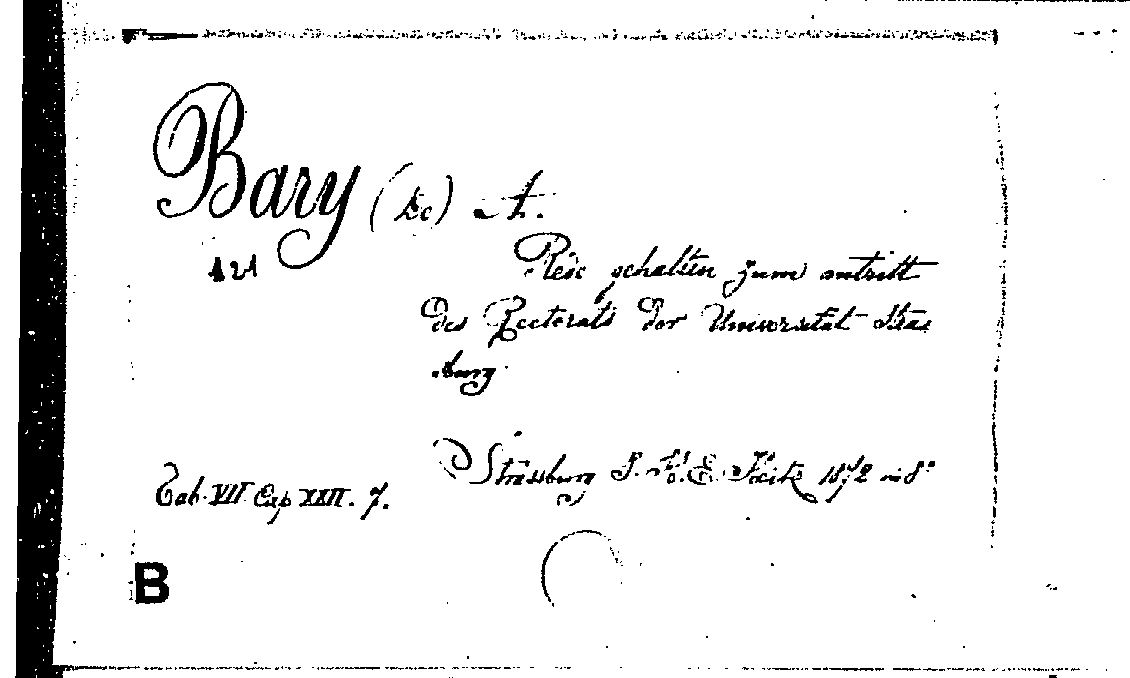 Bary (De) A.
121
Rede gehalten zum antritt
des Rectorats der Universität Stras
burg
Strassburg J. H. E. Heitz 1872 in 8°
Tab. VII Cap XXII. 7.
B